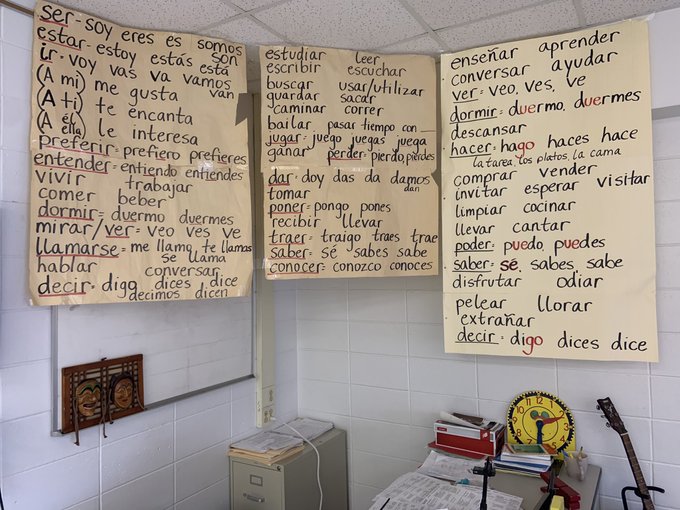 ser - soy eres es somos
son
estar - estoy estás está
ir - voy vas va vamos
van
(A mi) me gusta
(A ti) te encanta
(A él/ella) le interesa
preferir = prefiero prefieres
entender = entiendo entiendes
vivir trabajar
comer beber
dormir = duermo duermes
mirar/ver = veo ves ve
llamarse = me llamo te llamas
se llama
hablar conversar
decir - digo dices dice
decimos dicen
estudiar leer
escribir escuchar
buscar usar/utilizar
guardar sacar
caminar correr
bailar pasar tiempo con __
jugar = juego juegas juega
ganar perder = pierdo, pierdes
dar = doy das da damos
dan
tomar
poner = pongo pones
recibir llevar
traer = traigo traes trae
saber = sé sabes sabe
conocer = conozco conoces
enseñar aprender
conversar ayudar
ver = veo, ves, ve
dormir = duermo, duermes
descansar
hacer = hago haces hace
la tarea, los platos, la cama
comprar vender
invitar esperar visitar
limpiar cocinar
llevar cantar
poder = puedo, puedes
saber = sé, sabes, sabe
disfrutar odiar
pelear llorar
extrañar
decir = digo dices dice